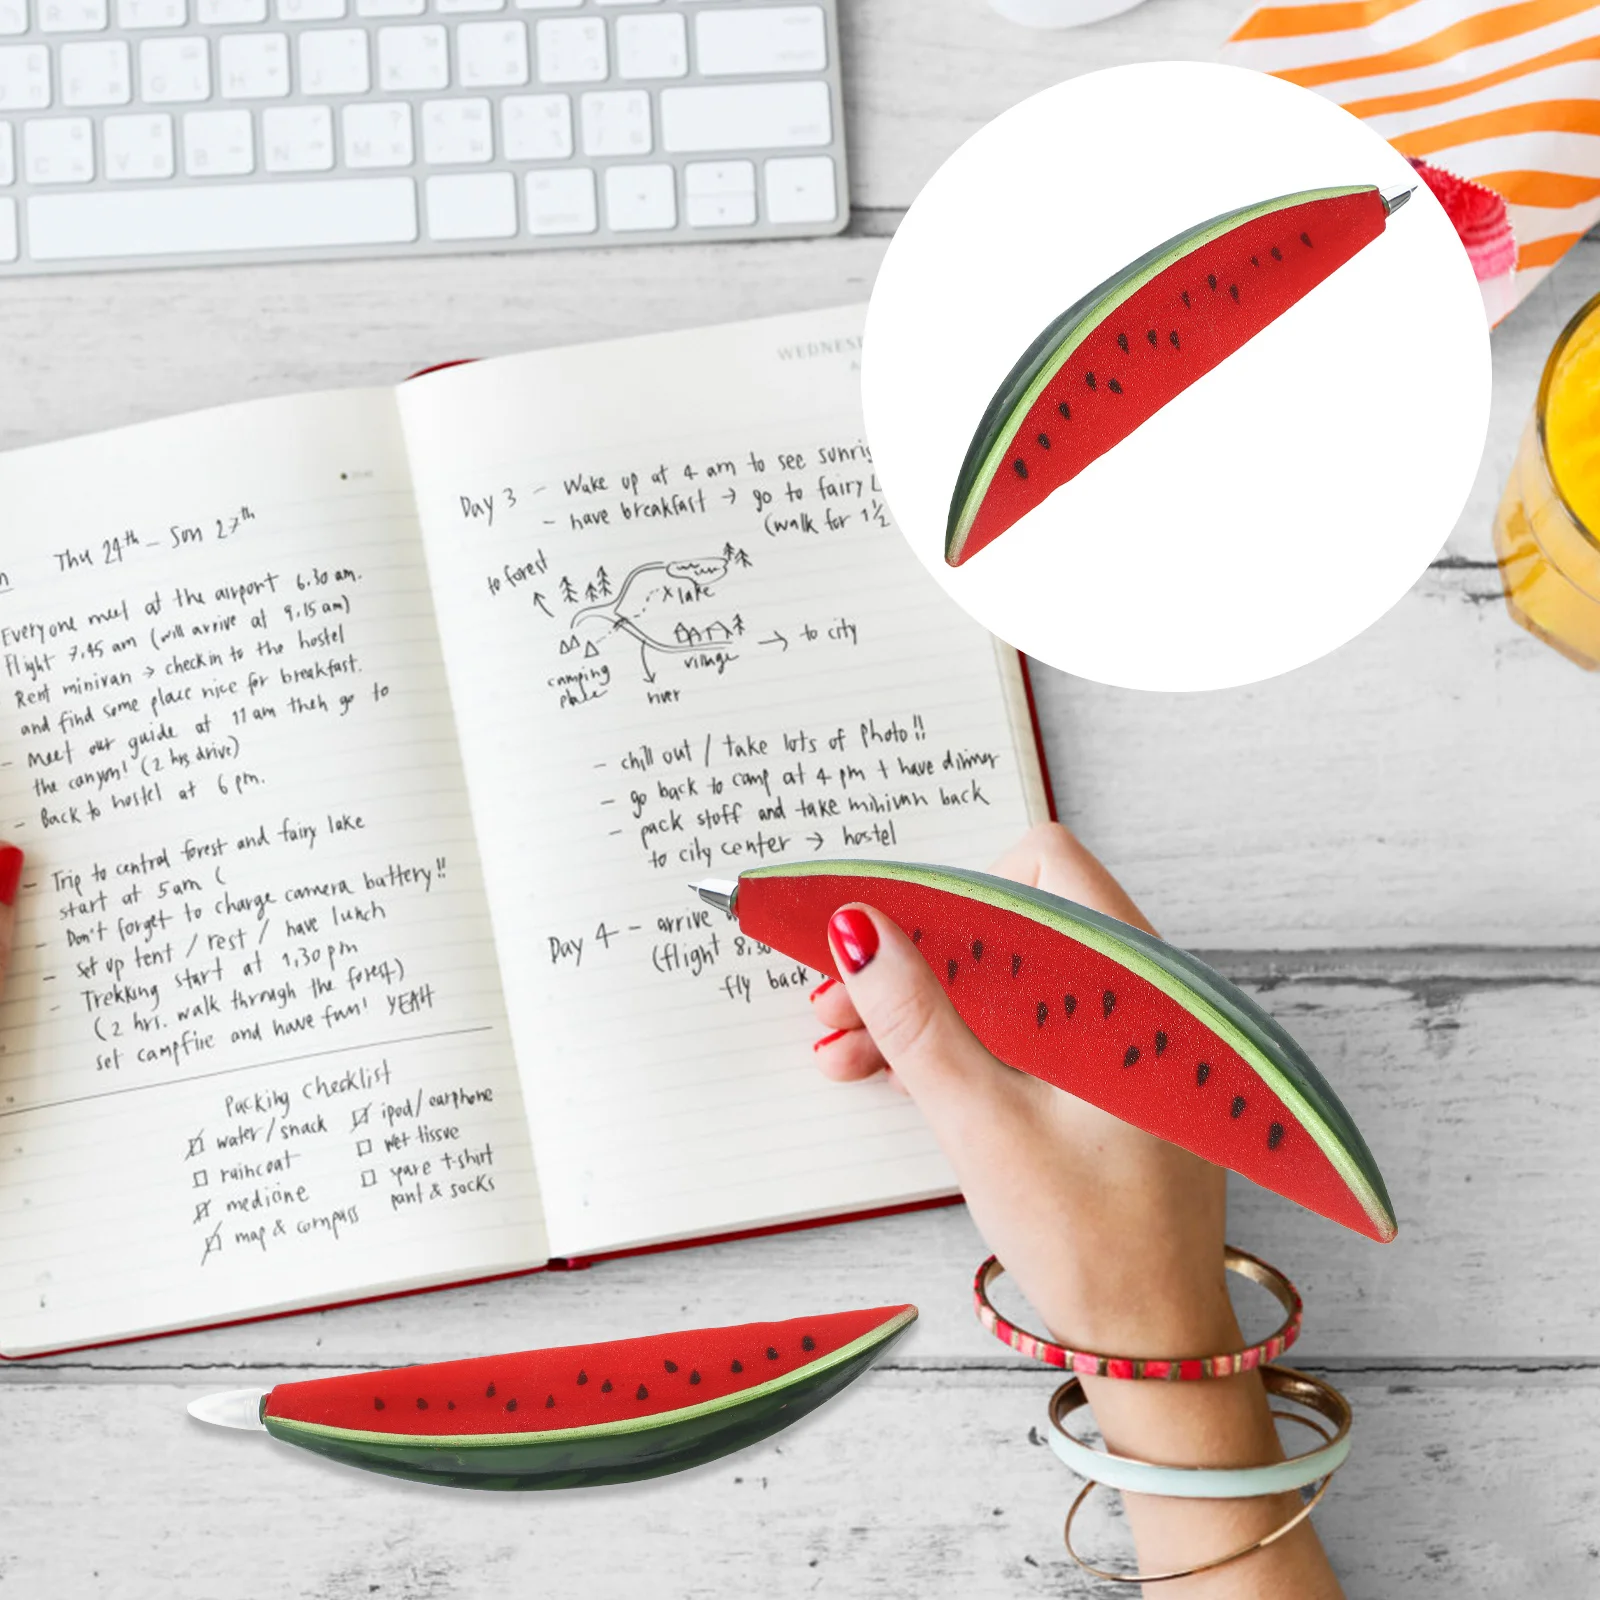 Thu 24th - Sun 27th
Everyone meet at the airport 6.30 am.
Flight 7.45 am (will arrive at 9.15 am)
Rent minivan → check in to the hostel
and find some place nice for breakfast.
- Meet our guide at 11 am then go to
the canyon! (2 hrs drive)
- Back to hostel at 6 pm.
- Trip to central forest and fairy lake
start at 5am (
- Don't forget to charge camera battery!!
- set up tent / rest / have lunch
- Trekking start at 1,30 pm
(2 hrs. walk through the forest)
set campfire and have fun! YEAH
Packing checklist
water/snack
raincoat
medicine
map & compass
ipod/earphone
wet tissue
spare t-shirt
pant & socks
WEDNES
Day 3 - Wake up at 4 am to see sunri
- have breakfast → go to fairy L
(walk for 1½
to forest
lake
to city
village
camping
place
river
- chill out / take lots of photo!!
- go back to camp at 4 pm + have dinner
- pack stuff and take minivan back
to city center → hostel
Day 4 - arrive
(flight 8.30
fly back